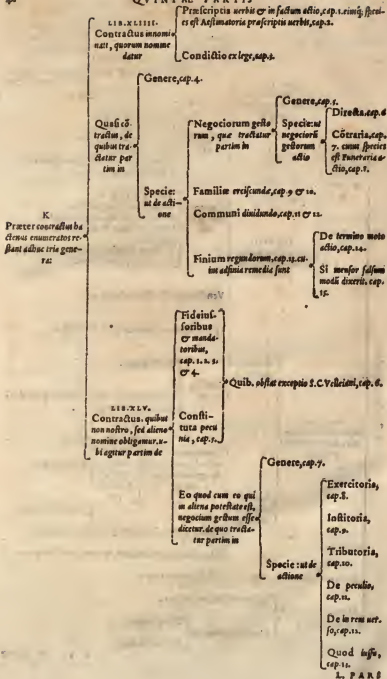 QVINTAE PARTIS
LIB. XLIIII.
Contractus innomi
nati, quorum nomine
datur
Præscriptis uerbis & in factum actio, cap.1. eiusq; speci-
es est Aestimatoria præscriptis uerbis, cap.2.
Condictio ex lege, cap.3.
K
Præter contractus ha
ctenus enumeratos re-
stant adhuc tria gene-
ra:
Quasi cō-
tractus, de
quibus tra-
ctatur par
tim in
Genere, cap.4.
Specie:
ut de acti-
one
Negociorum gesto
rum, quæ tractatur
partim in
Genere, cap.5.
Specie: ut
negociorū
gestorum
actio
Directa, cap.6
Cōtraria, cap.
7. cuius species
est Funeraria a-
ctio, cap.8.
Familiæ erciscundæ, cap.9 & 10.
Communi diuidundo, cap.11 & 12.
Finium regundorum, cap.13. cu-
ius adfinia remedia sunt
De termino moto
actio, cap.14.
Si mensor falsum
modū dixerit, cap.
15.
LIB. XLV.
Contractus, quibus
non nostro, sed alieno
nomine obligamur. u-
bi agitur partim de
Fideius-
soribus
& manda-
toribus,
cap. 1. 2. 3.
& 4.
Consti-
tuta pecu
nia, cap.5.
Quib. obstat exceptio S.C. Velleiani, cap.6.
Eo quod cum eo qui
in aliena potestate est,
negocium gestum esse
dicetur. de quo tracta-
tur partim in
Genere, cap.7.
Specie: ut de
actione
Exercitoria,
cap.8.
Institoria,
cap.9.
Tributoria,
cap.10.
De peculio,
cap.11.
De in rem uer-
so, cap.12.
Quod iussu,
cap.13.
L. PARS